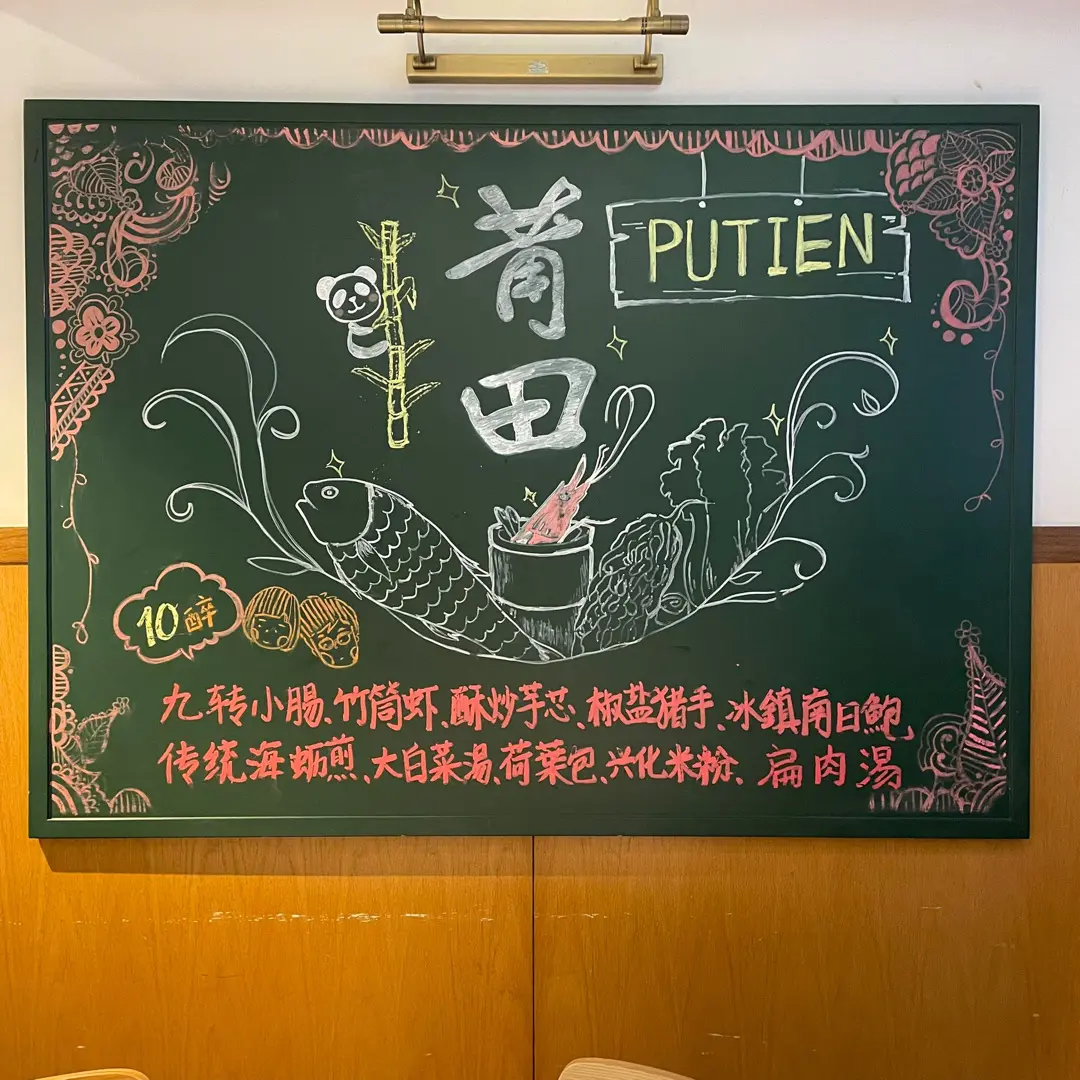 莆田
PUTIEN
10醉
九转小腸、竹筒虾、酥炒芋芯、椒盐猪手、冰鎮南日鲍、
传统海蛎煎、大白菜湯、荷葉包、兴化米粉、扁肉湯